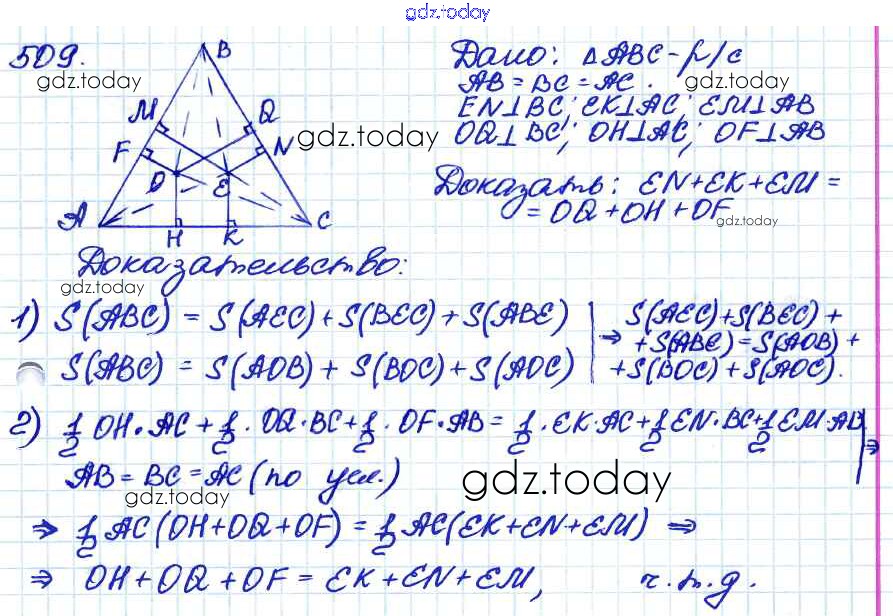 gdz.today
509.
gdz.today
B
M
Q
F
N
gdz.today
O
E
A
H
K
C
Дано: △ABC - р/с
AB = BC = AC.
gdz.today
EN⊥BC; EK⊥AC; EM⊥AB
OQ⊥BC; OH⊥AC; OF⊥AB
Доказать: EN+EK+EM =
= OQ+OH+OF
gdz.today
Доказательство:
gdz.today
1) S(ABC) = S(AEC)+S(BEC)+S(ABE)
S(ABC) = S(AOB) + S(BOC)+S(AOC)
⇒ S(AEC)+S(BEC)+
+S(ABE)=S(AOB)+
+S(BOC)+S(AOC).
2) 1/2 OH·AC+1/2·OQ·BC+1/2·OF·AB=1/2·EK·AC+1/2EN·BC+1/2EM·AB ⇒
AB = BC = AC (по усл.)
gdz.today
gdz.today
⇒ 1/2AC(OH+OQ+OF) = 1/2AC(EK+EN+EM) ⇒
⇒ OH+OQ+OF = EK+EN+EM, ч.т.д.